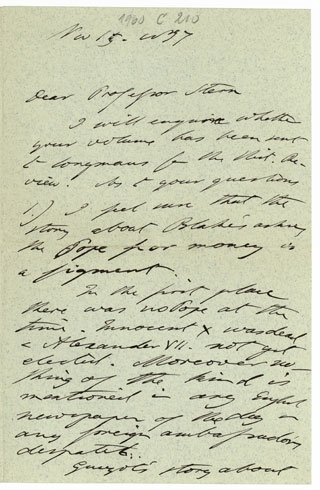 1900 C 210
Nov 15. 1897
Dear Professor Stern
I will enquire whether
your volume has been sent
to Longmans for the Hist. Re-
view. As to your questions
1.) I feel sure that the
story about Blake's asking
the Pope for money is
a figment.
In the first place
there was no Pope at the
time. Innocent X was dead
& Alexander VII. not yet
elected. Moreover no
thing of the kind is
mentioned in any English
newspaper of the day or
any foreign ambassador's
despatch.
Guizot's story about